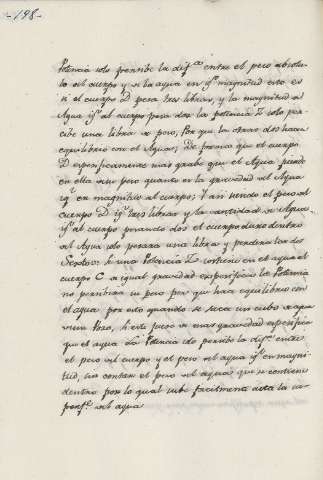 -198-
Potencia solo percibe la dif.ª entre el peso absolu-
to del cuerpo y de la agua en ig.l magnitud esto es
si el cuerpo D pesa tres libras, y la magnitud de
Agua ig.l al cuerpo pesa dos la potencia Z solo per-
cibe una libra de peso, Por que las otras dos hacen
equilibrio con el Agua; De forma que el cuerpo
D especificamente mas grabe que el Agua pierde
en ella su peso quanto es la gravedad del Agua
ig.l en magnitud al cuerpo; Y asi siendo el peso del
cuerpo D ig.l tres libras y la cantidad de Agua
ig.l al cuerpo pesando dos el cuerpo dentro
del Agua solo pesara una libra y perdera las dos
Sexto= Si una Potencia Z sostiene en el agua el
cuerpo C de igual gravedad especifica la Potencia
no percibira su peso por que hace equilibrio con
el agua por esto quando se saca un cubo de agua
de un Pozo, si este fuese de mas gravedad especifica
que el agua la Potencia solo percibe la dif.ª entre
el peso del cuerpo y el peso del agua ig.l en magni-
tud, sin contar el peso del agua que se contiene
dentro por lo qual sube facilmente asta la su-
perf.e del agua